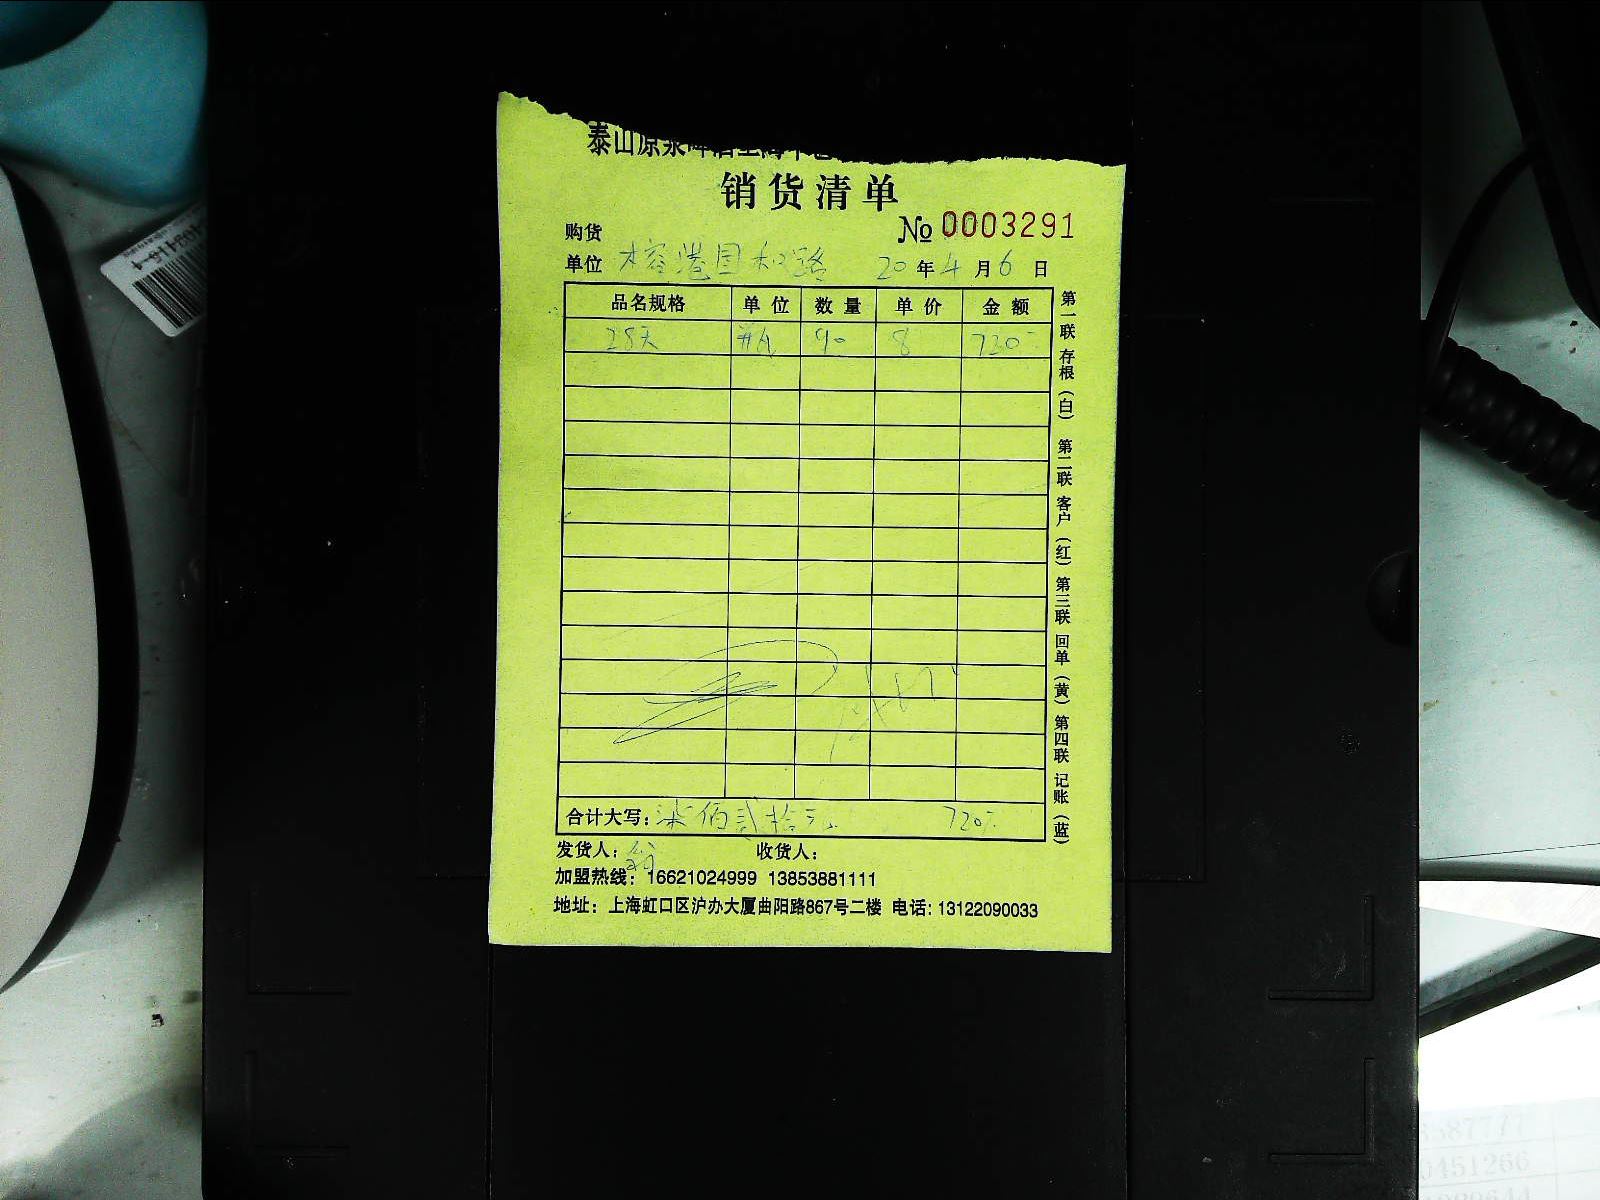 泰山原浆啤酒上海
销货清单
№ 0003291
购货
单位 榕港国和路 20年4月6日
品名规格 单位 数量 单价 金额
28天 90 8 720
合计大写: 柒佰贰拾元 720
发货人: 翁 收货人:
加盟热线: 16621024999 13853881111
地址: 上海虹口区沪办大厦曲阳路867号二楼 电话: 13122090033
第一联 存根(白) 第二联 客户(红) 第三联 回单(黄) 第四联 记账(蓝)
587777
0451266